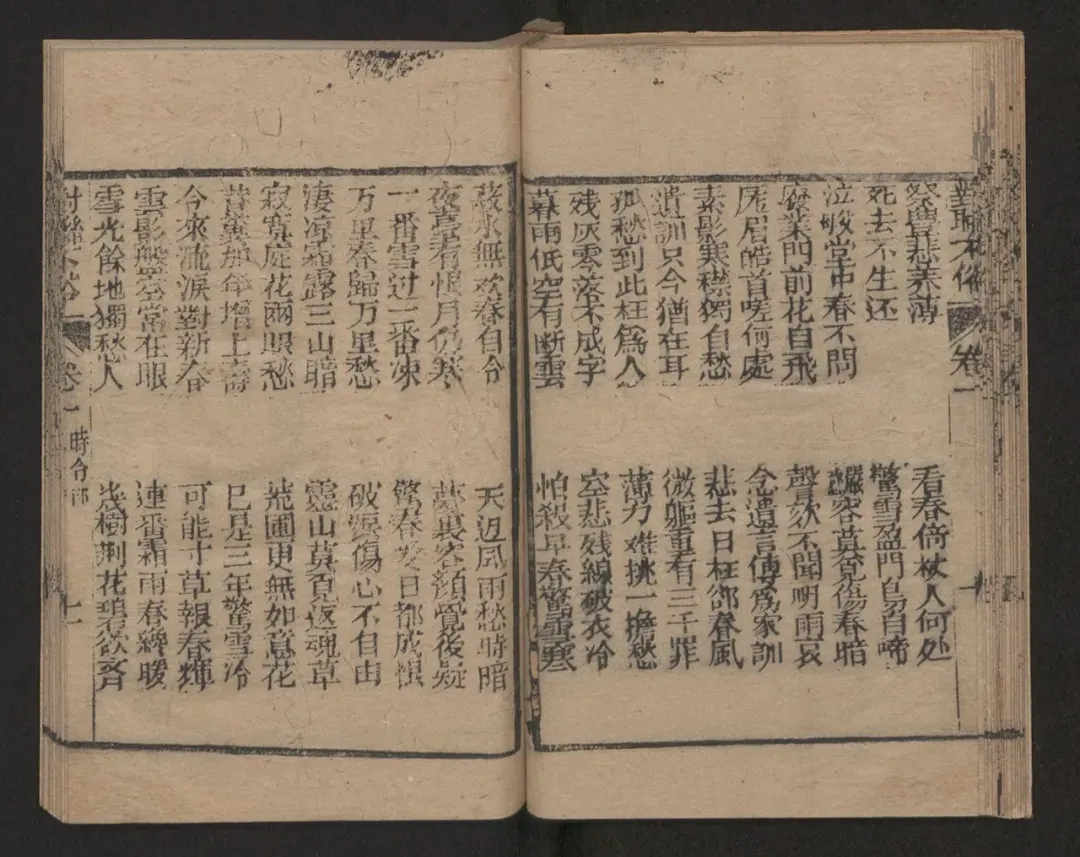 對聯不俗 卷一 十
祭豐悲養薄
死去不生还
泣 堂中春不問
廢業門前花自飛
厖眉皓首嗟何處
素影寒襟獨自愁
遺訓只今猶在耳
孤愁到此枉爲人
残灰零落不成字
暮雨低空有断雲
看春倚杖人何处
驚雪盈門鳥自啼
容莫覓傷春暗
聲欬不聞明雨哀
念遺言傳爲家訓
悲去日枉郤春風
微軀重有三千罪
薄力难挑一擔愁
空悲残線破衣冷
怕殺早春驚雪寒
菽水無欢春自合
夜臺有恨月仍寒
一番雪过一番凍
万里春歸万里愁
淒凉霜露三山暗
寂寞庭花兩眼愁
昔冀那年增上壽
今來流淚對新春
雲影盤空常在眼
雪光餘地獨愁人
天迥風雨愁時暗
夢裏容顏覺後疑
驚春愛日都成恨
破淚傷心不自由
靈山莫覓返魂草
荒圃更無如意花
已是三年驚雪冷
可能寸草報春輝
連番霜雨春纔暖
幾樹荆花碧欲齐
對聯不俗 卷一 時令部 十一